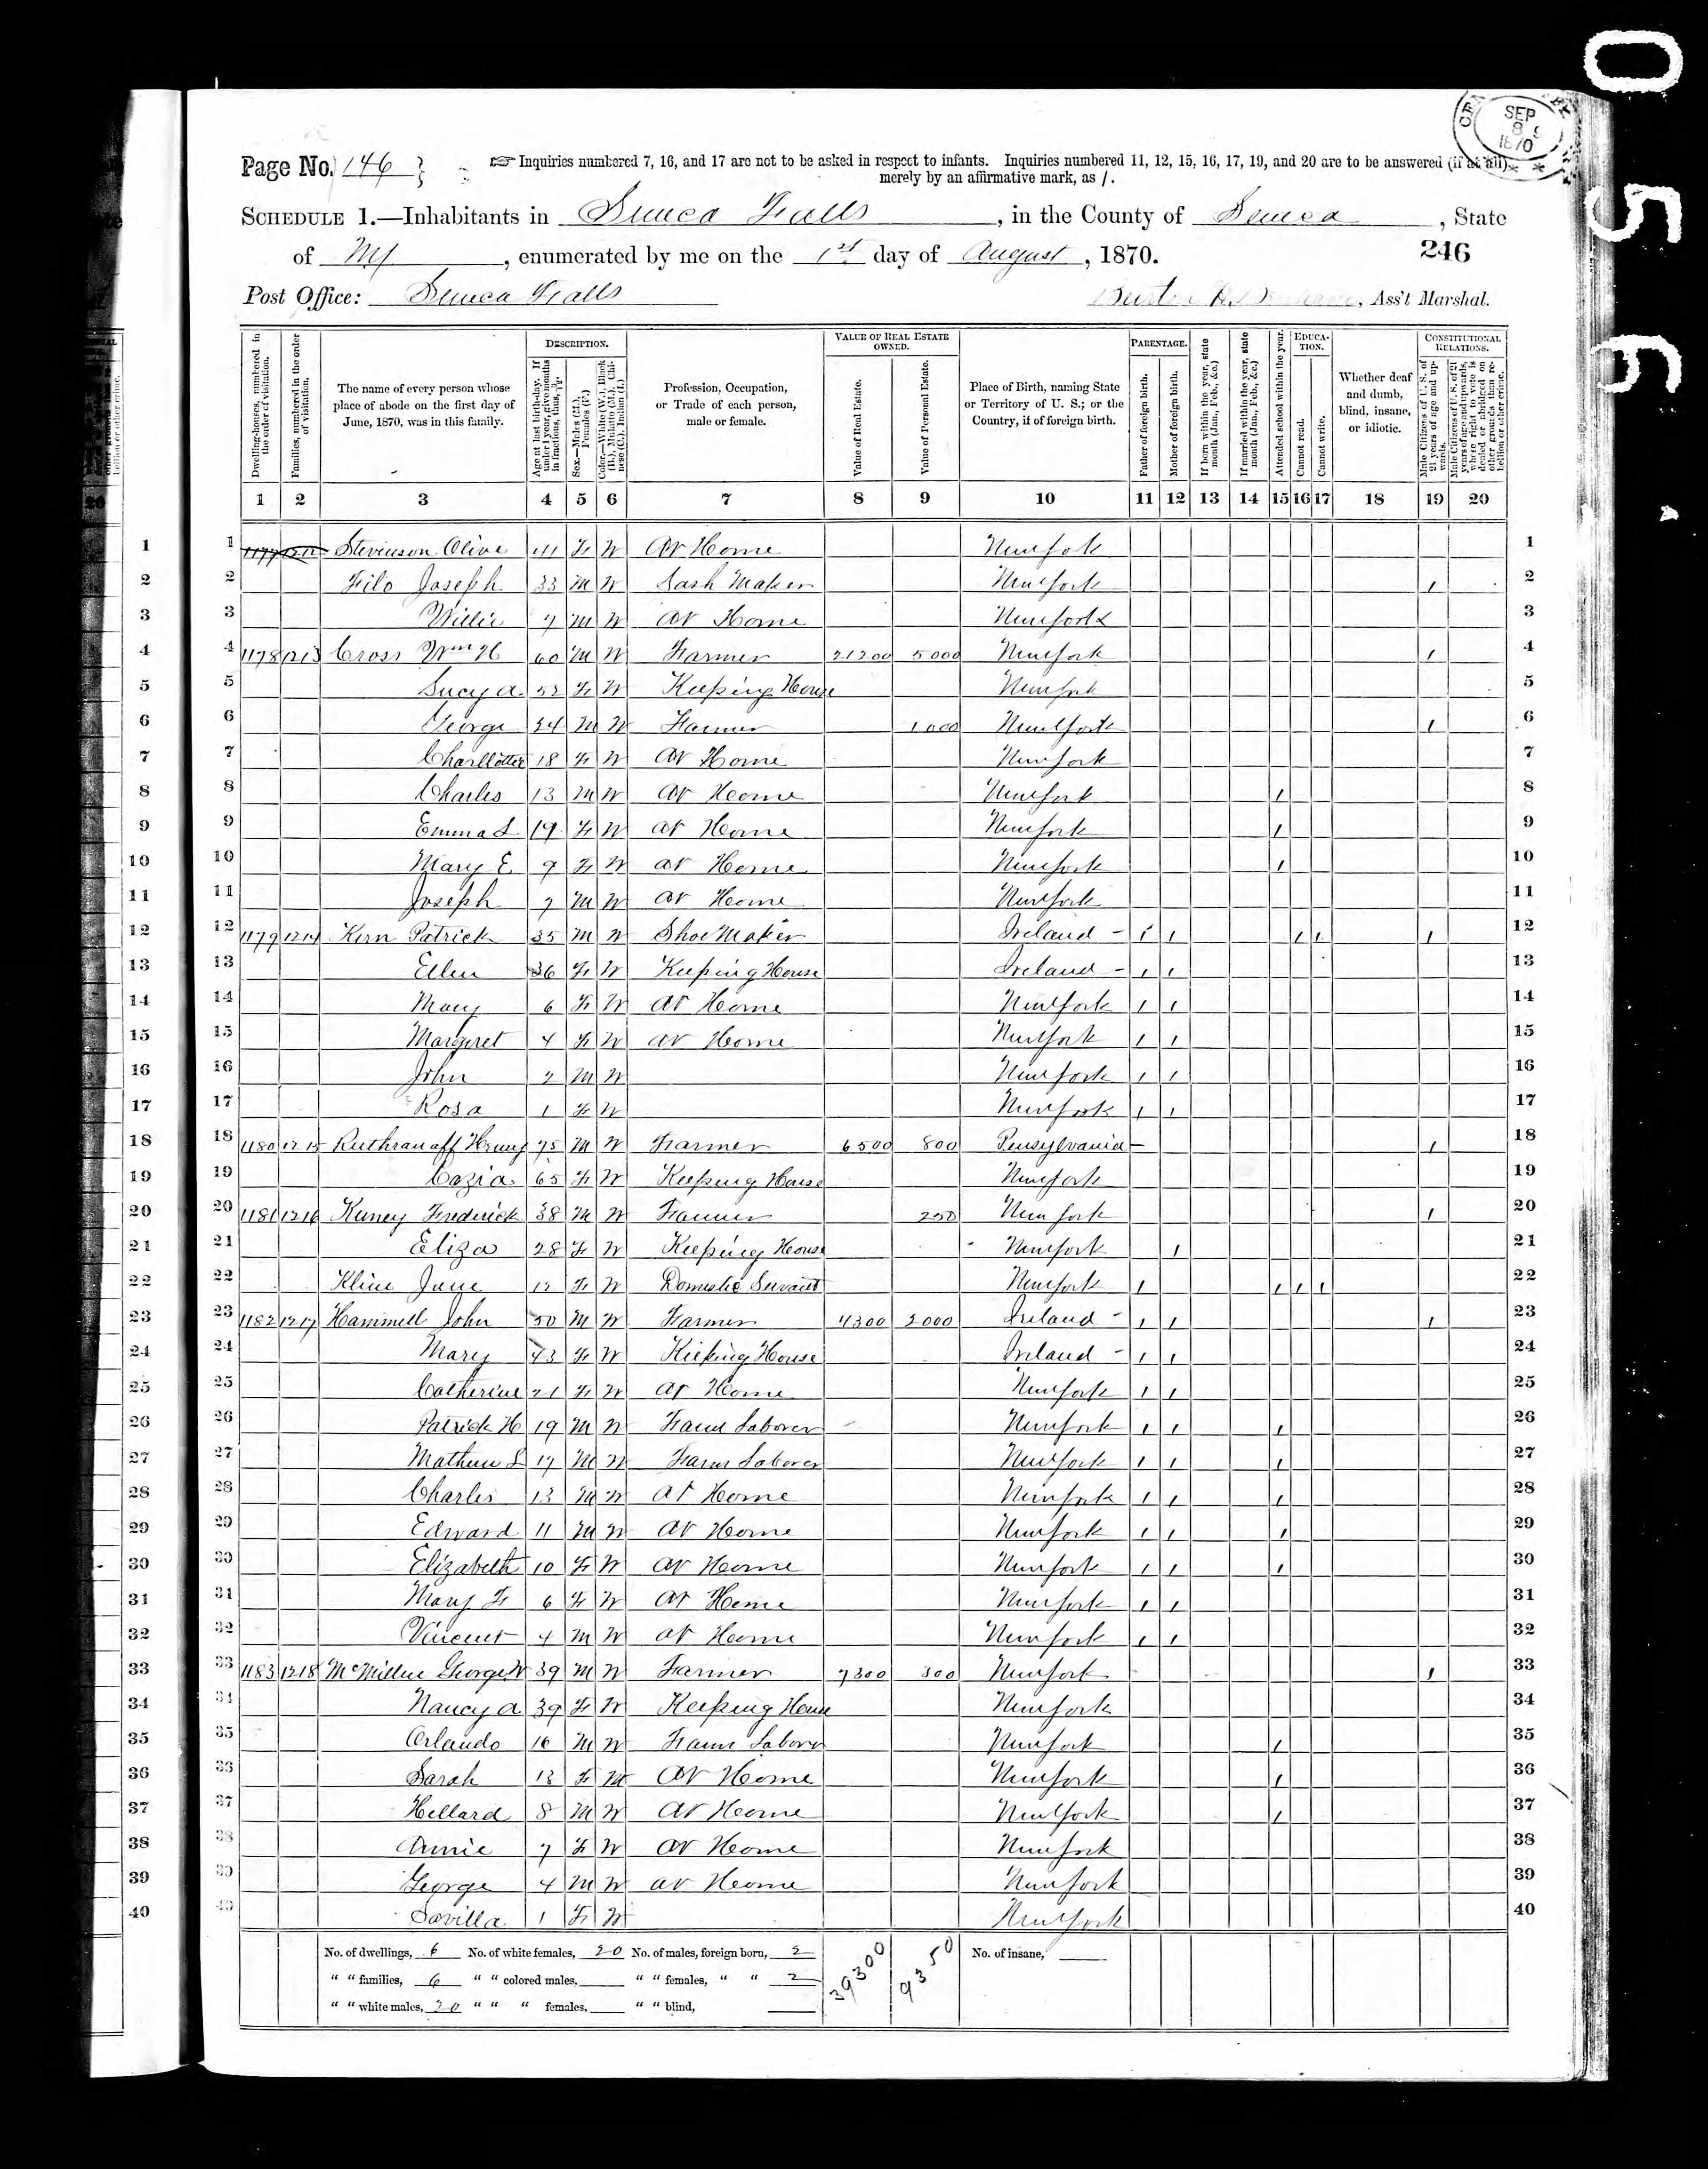 Page No. 146
☞ Inquiries numbered 7, 16, and 17 are not to be asked in respect to infants. Inquiries numbered 11, 12, 15, 16, 17, 19, and 20 are to be answered (if at all)
merely by an affirmative mark, as /.
SEP 8 1870
SCHEDULE 1.—Inhabitants in Seneca Falls, in the County of Seneca, State
of NY, enumerated by me on the 1st day of August, 1870.
246
Post Office: Seneca Falls
Ass't Marshal.
Dwelling-houses, numbered in the order of visitation.
Families, numbered in the order of visitation.
The name of every person whose place of abode on the first day of June, 1870, was in this family.
DESCRIPTION.
Age at last birth-day. If under 1 year, give months in fractions, thus, 3/12.
Sex.—Males (M.), Females (F.)
Color.—White (W.), Black (B.), Mulatto (M.), Chinese (C.), Indian (I.)
Profession, Occupation, or Trade of each person, male or female.
VALUE OF REAL ESTATE OWNED.
Value of Real Estate.
Value of Personal Estate.
Place of Birth, naming State or Territory of U. S.; or the Country, if of foreign birth.
PARENTAGE.
Father of foreign birth.
Mother of foreign birth.
If born within the year, state month (Jan., Feb., &c.)
If married within the year, state month (Jan., Feb., &c.)
Attended school within the year.
EDUCATION.
Cannot read.
Cannot write.
Whether deaf and dumb, blind, insane, or idiotic.
CONSTITUTIONAL RELATIONS.
Male Citizens of U. S. of 21 years of age and upwards.
Male Citizens of U. S. of 21 years of age and upwards, whose right to vote is denied or abridged on other grounds than rebellion or other crime.
1 2 3 4 5 6 7 8 9 10 11 12 13 14 15 16 17 18 19 20
1 1177 1212 Stevinson Olive F W At Home New York 1
2 Filo Joseph 33 M W Sash Maker New York / 2
3 Willie 7 M W At Home New York 3
4 1178 1213 Cross Wm H 60 M W Farmer 21200 5000 New York / 4
5 Lucy A. F W Keeping House New York 5
6 George M W Farmer 1000 New York / 6
7 Charllotte 18 F W At Home New York 7
8 Charles 13 M W At Home New York / 8
9 Emma L 19 F W At Home New York / 9
10 Mary E 9 F W At Home New York / 10
11 Joseph 7 M W At Home New York 11
12 1179 1214 Kirn Patrick 35 M W Shoe Maker Ireland – / / / / / 12
13 Ellen 36 F W Keeping House Ireland – / / 13
14 Mary 6 F W At Home New York / / 14
15 Margret 4 F W At Home New York / / 15
16 John 2 M W New York / / 16
17 Rosa 1 F W New York / / 17
18 1180 1215 Ruthranaff Henry 75 M W Farmer 6500 800 Pensylvania – / 18
19 Cozia 65 F W Keeping House New York 19
20 1181 1216 Kuney Frederick 38 M W Farmer 250 New York / 20
21 Eliza 28 F W Keeping House New York / 21
22 Kline Jane 12 F W Domestic Servant New York / / / / 22
23 1182 1217 Hammell John 50 M W Farmer 4300 2000 Ireland – / / / 23
24 Mary 43 F W Keeping House Ireland – / / 24
25 Catherine 21 F W At Home New York / / 25
26 Patrick H 19 M W Farm Laborer New York / / / 26
27 Mathew L 17 M W Farm Laborer New York / / / 27
28 Charles 13 M W At Home New York / / / 28
29 Edward 11 M W At Home New York / / / 29
30 Elizabeth 10 F W At Home New York / / / 30
31 Mary F 6 F W At Home New York / / 31
32 Vincent 4 M W At Home New York / / 32
33 1183 1218 McMillen George W 39 M W Farmer 7300 300 New York / 33
34 Nancy A 39 F W Keeping House New York 34
35 Orlando 16 M W Farm Laborer New York / 35
36 Sarah 13 F W At Home New York / 36
37 Hellard 8 M W At Home New York / 37
38 Annie 7 F W At Home New York 38
39 George 4 M W At Home New York 39
40 Savilla 1 F W New York 40
No. of dwellings, 6 No. of white females, 20 No. of males, foreign born, 2 39300 9350 No. of insane,
" " families, 6 " " colored males, " " females, " " 2
" " white males, 20 " " " females, " " blind,